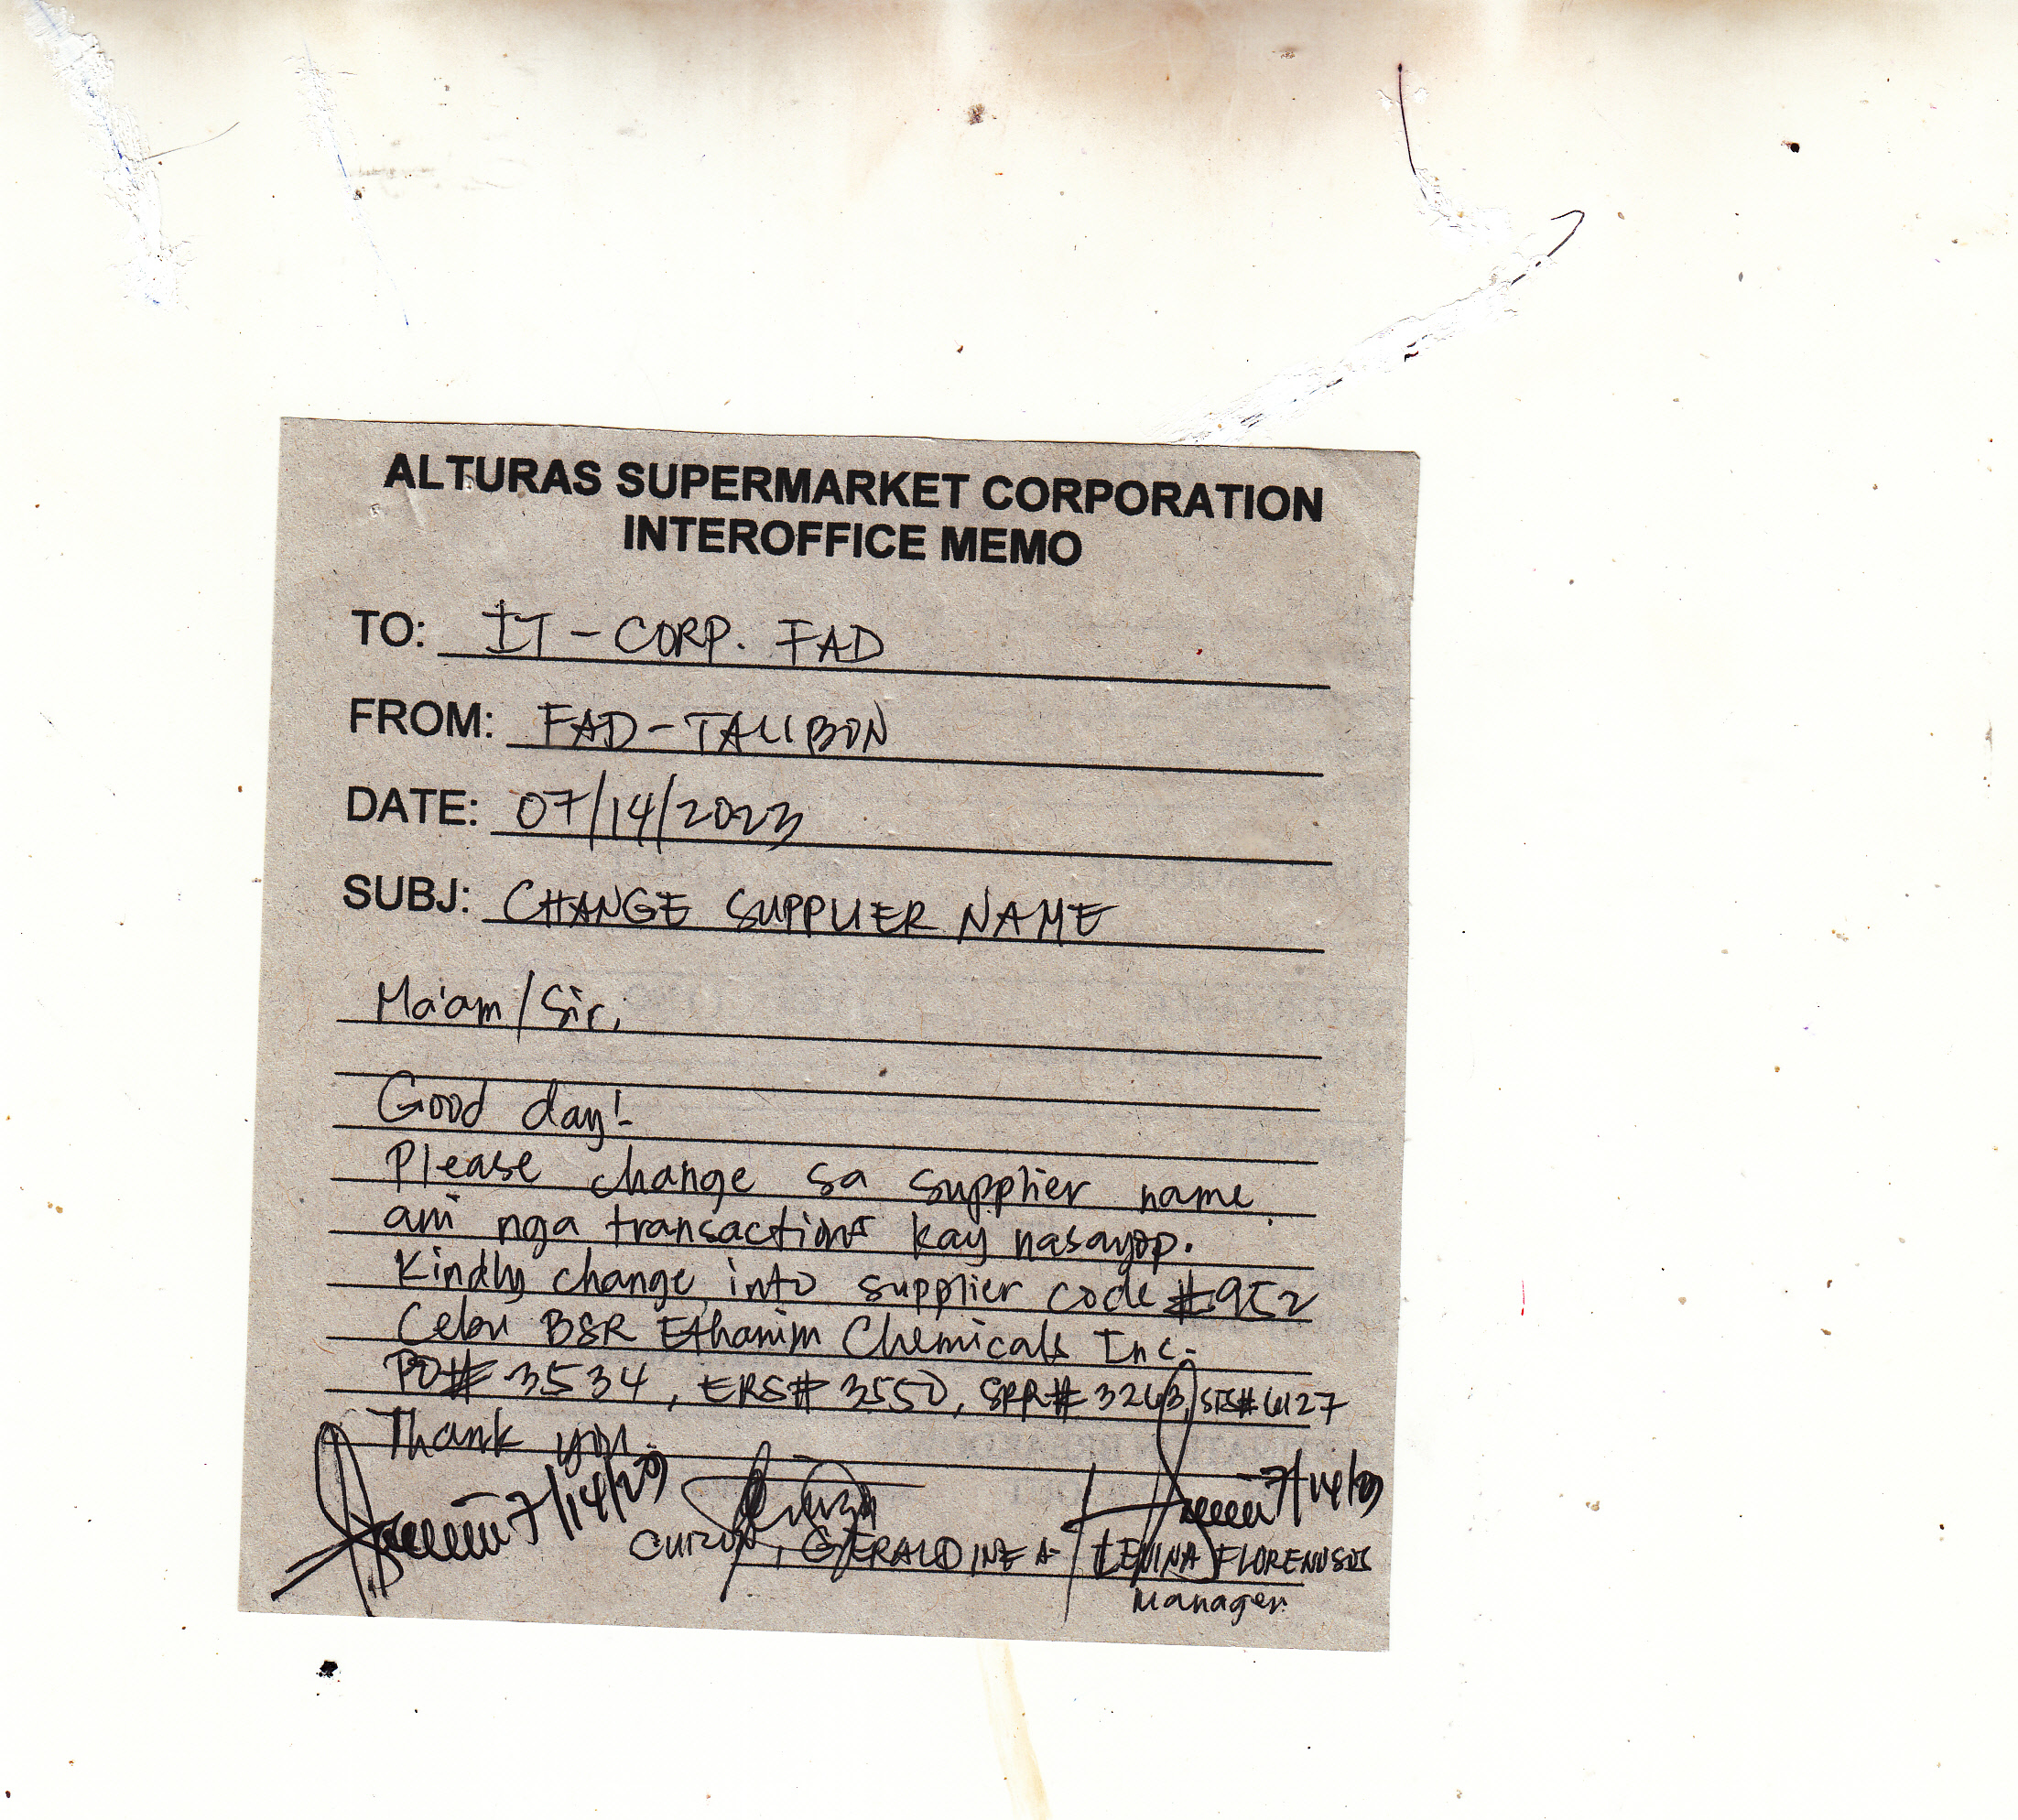 ALTURAS SUPERMARKET CORPORATION
INTEROFFICE MEMO
TO: IT - CORP. FAD
FROM: FAD - TALIBON
DATE: 07/14/2023
SUBJ: CHANGE SUPPLIER NAME
Ma'am/Sir,
Good day!
Please change sa supplier name
ani nga transactions kay nasayop.
Kindly change into supplier code #952
Cebu BSR Ethanim Chemicals Inc.
PO# 3534, ERS# 3550, SRR# 3263, STS# 6127
Thank you.
7/14/23 7/14/23
GERALDINE A. FLORENOSOS
Manager